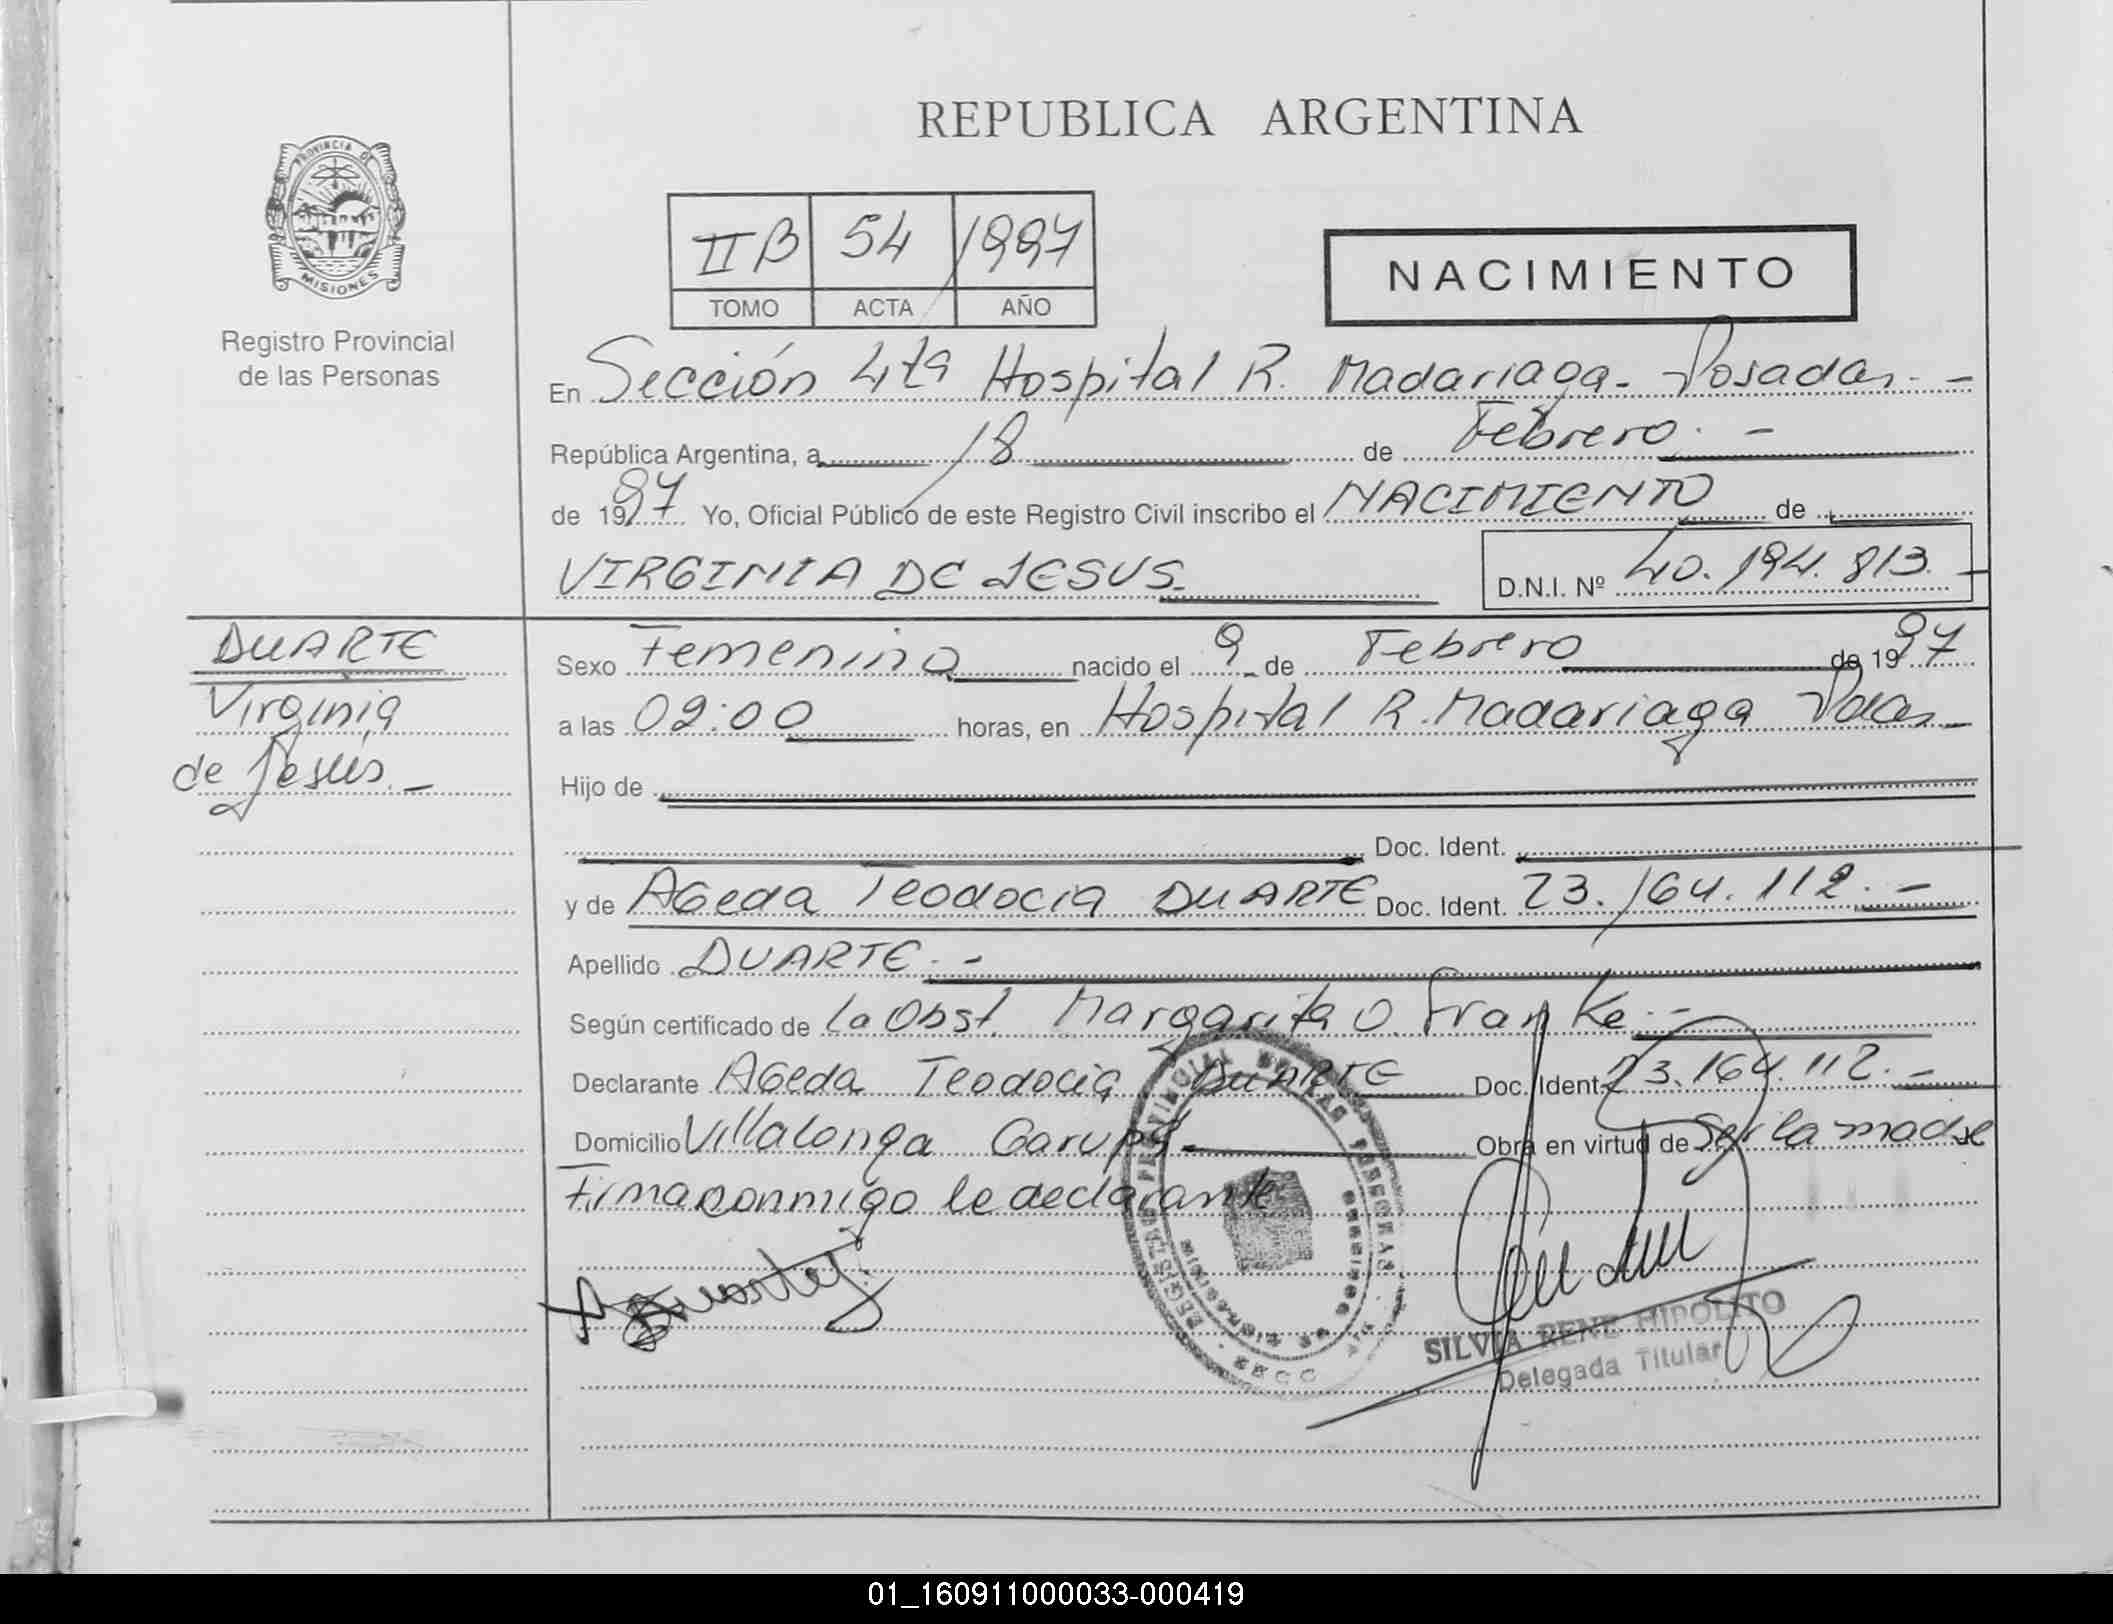 REPUBLICA ARGENTINA
PROVINCIA DE MISIONES
Registro Provincial
de las Personas
II B 54 1997
TOMO ACTA AÑO
NACIMIENTO
En Sección 4ta Hospital R. Madariaga - Posadas. -
República Argentina, a 18 de Febrero. -
de 1997 Yo, Oficial Público de este Registro Civil inscribo el NACIMIENTO de
VIRGINIA DE JESUS D.N.I. Nº 40.194.813.-
DUARTE
Virginia
de Jesús. -
Sexo Femenino nacido el 9 de Febrero de 1997
a las 02:00 horas, en Hospital R. Madariaga Pdas
Hijo de
Doc. Ident.
y de AGeda Teodocia DUARTE Doc. Ident. 23.164.112. -
Apellido DUARTE. -
Según certificado de la Obst. Margarita O. Franke. -
Declarante AGeda Teodocia DUARTE Doc. Ident. 23.164.112. -
Domicilio Villalonga Garupá Obra en virtud de Ser la madre
Firma conmigo la declarante
SILVIA RENE HIPOLITO
Delegada Titular
01_160911000033-000419